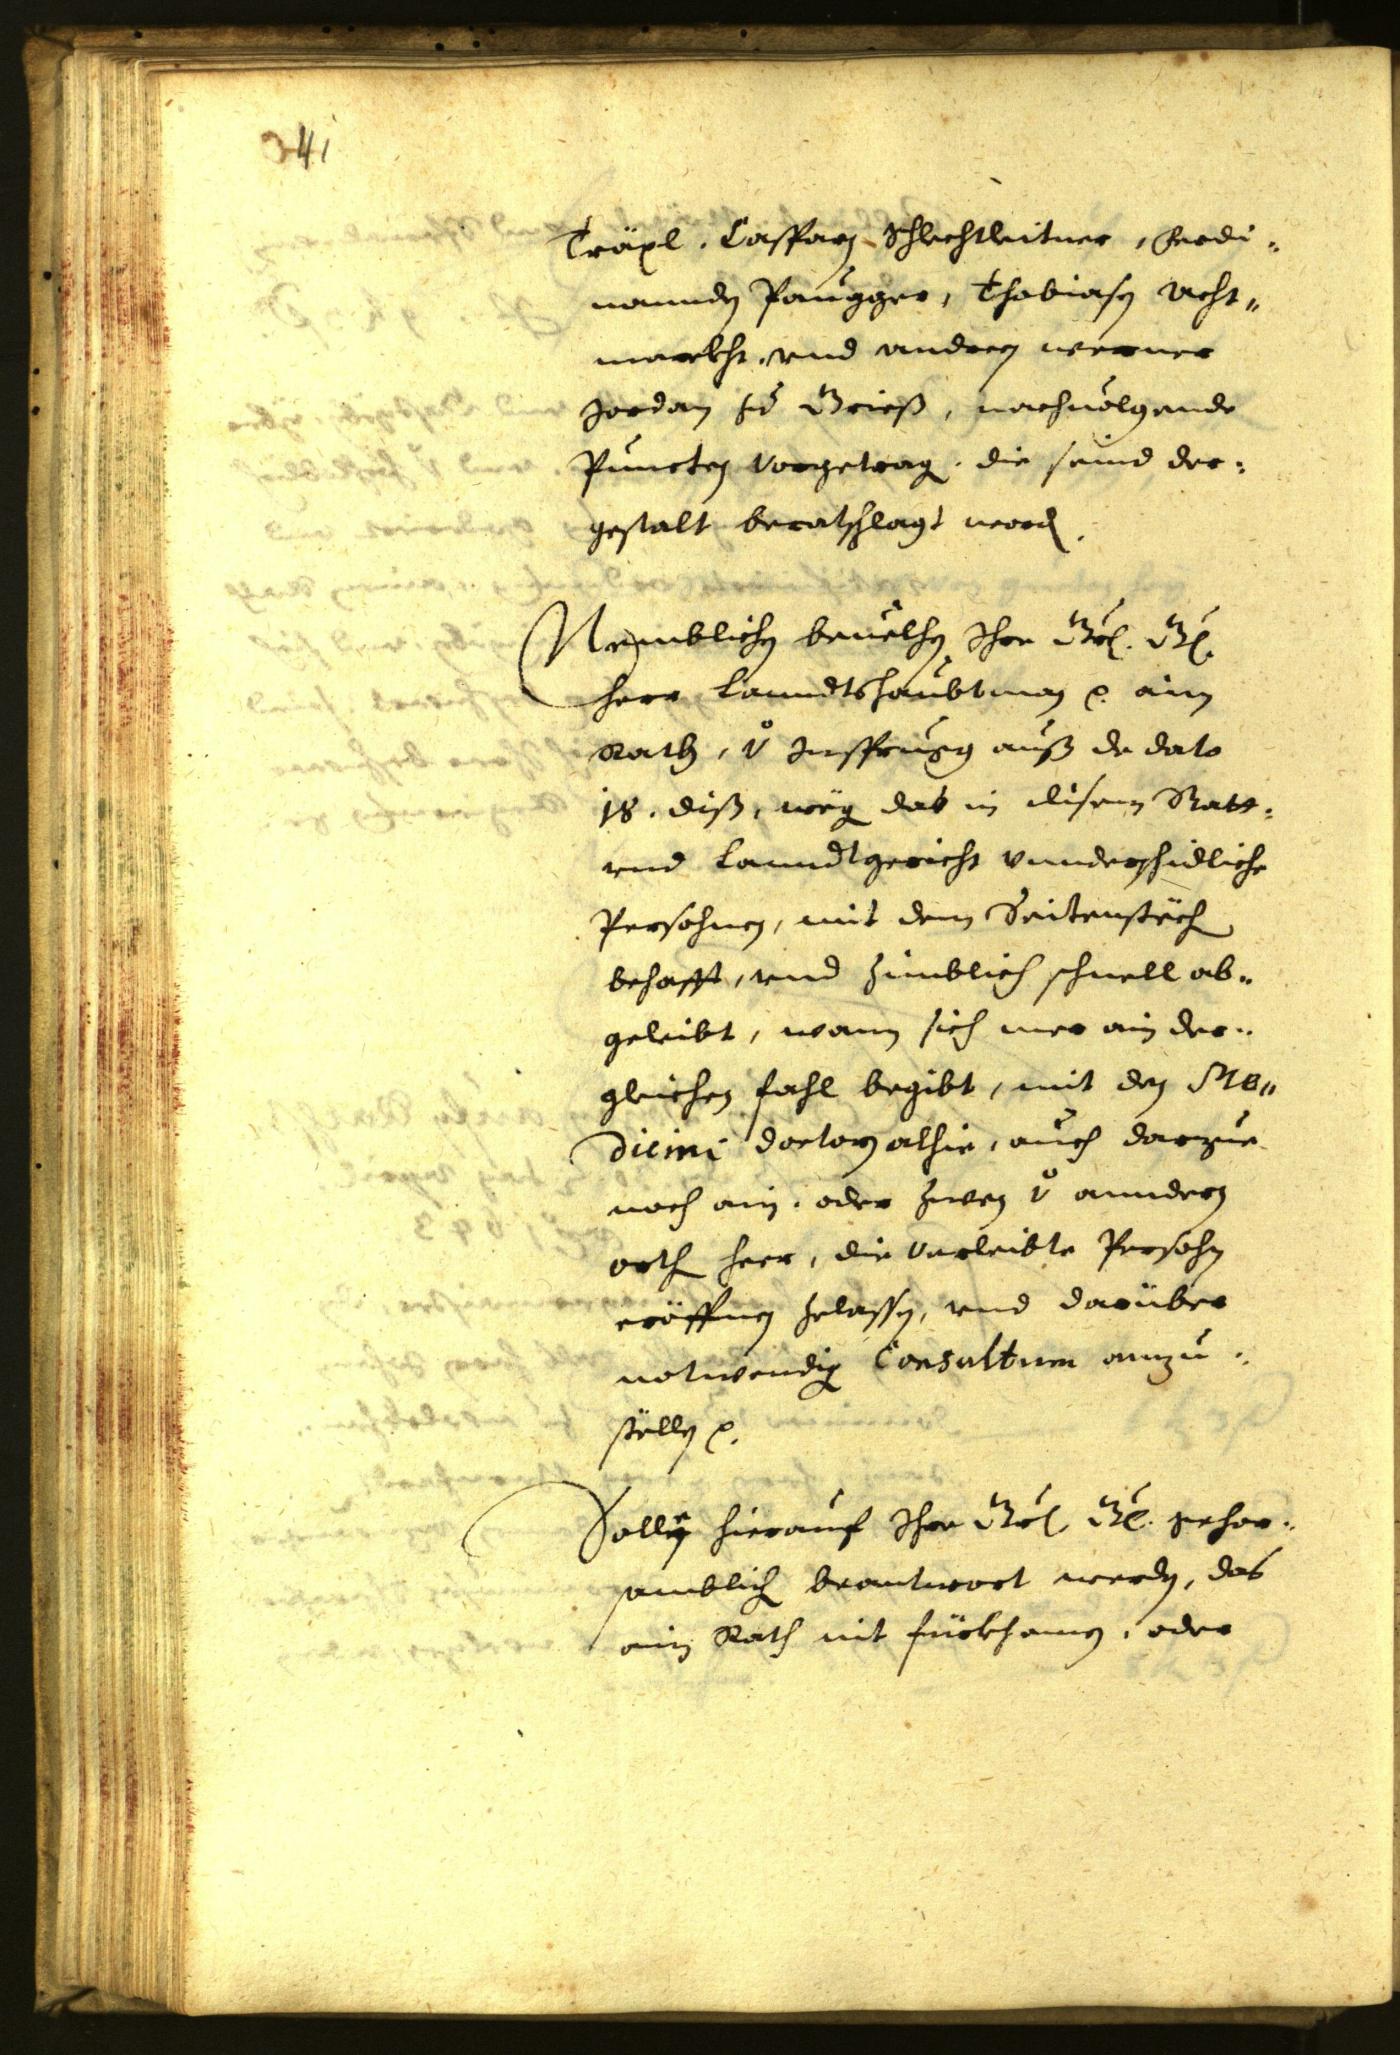 341
Träxl, Casparn Schlechtleitner, Ferdi-
nannden Paugger, Thobiasen Acht-
markht, vnd andern werner
Jordan Zu Grieß, nachuolgende
Puncten vorgetrag, die seind der-
gestalt beratschlagt word.
Nemblichen beuelhen Ihr Gl. Gl.
herr Lanndtshaubtman p. ain
Rath, v Insprugg auß de dato
18. diß, weg das in disem Statt-
vnd Lanndtgericht vnnderschidliche
Persohnen, mit dem Seitenstëch
behafft, vnd zimblich schnell ab-
geleibt, wann sich mer ain der-
gleichen fahl begibt, mit den Me-
dicini doctorn alhie, auch darzue
noch ain, oder zwen v anndern
orth heer, die verleibte Persohn
eröffnen zelassen, vnd darüber
notwendig Consultum anzu-
stëllen p.
Sollen hierauf Ihr Gl. Gl. gehor-
samblich beantwort werden, das
ain Rath nit fürkhomen, oder